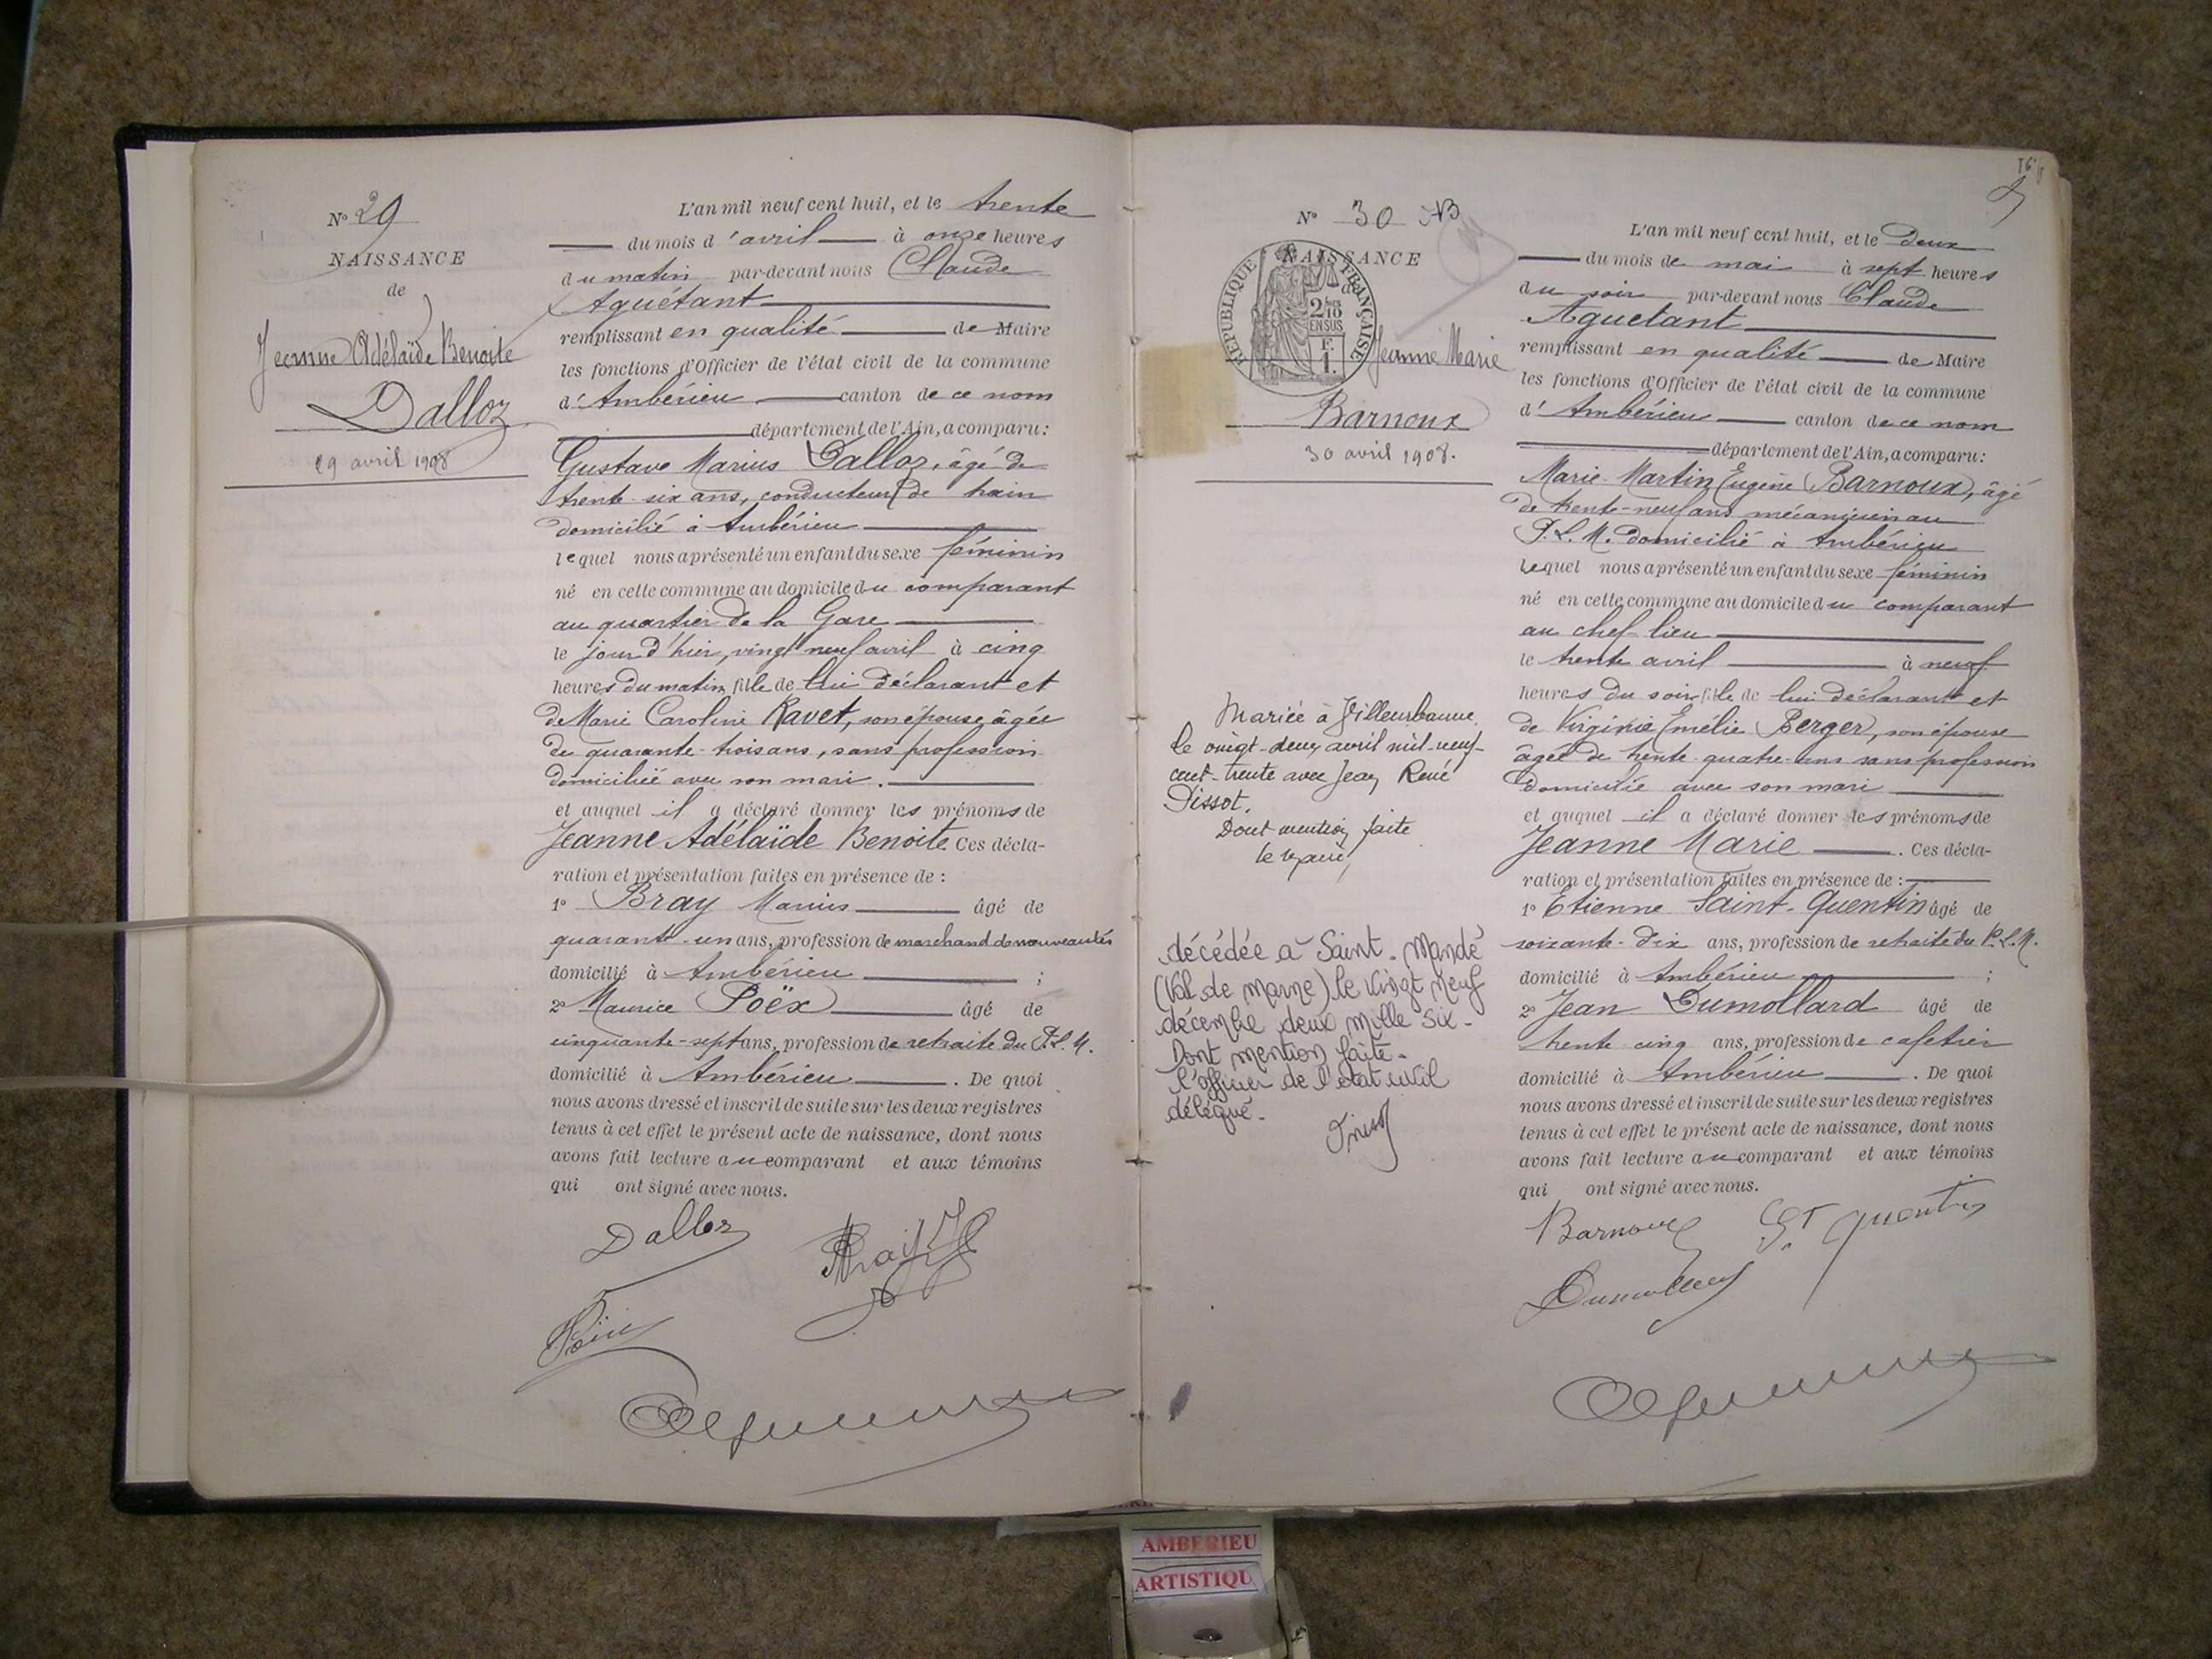 N° 29
NAISSANCE
de
Jeanne Adélaïde Benoite
Dalloz
29 avril 1908
L'an mil neuf cent huit, et le trente
du mois d'avril à onze heures
du matin par-devant nous Claude
Aguétant
remplissant en qualité de Maire
les fonctions d'Officier de l'état civil de la commune
d'Ambérieu canton de ce nom
département de l'Ain, a comparu:
Gustave Marius Dalloz, âgé de
trente-six ans, conducteur de train
domicilié à Ambérieu
lequel nous a présenté un enfant du sexe féminin
né en cette commune au domicile du comparant
au quartier de la Gare
le jour d'hier, vingt neuf avril à cinq
heures du matin, fille de lui déclarant et
de Marie Caroline Ravet, son épouse, âgée
de quarante-trois ans, sans profession
domiciliée avec son mari.
et auquel il a déclaré donner les prénoms de
Jeanne Adélaïde Benoite. Ces décla-
ration et présentation faites en présence de :
1° Bray Marius âgé de
quarante-un ans, profession de marchand de nouveautés
domicilié à Ambérieu ;
2° Maurice Poëx âgé de
cinquante-sept ans, profession de retraité du P.L.M.
domicilié à Ambérieu. De quoi
nous avons dressé et inscrit de suite sur les deux registres
tenus à cet effet le présent acte de naissance, dont nous
avons fait lecture au comparant et aux témoins
qui ont signé avec nous.
Dalloz
N° 30 AB
NAISSANCE
de
RÉPUBLIQUE FRANÇAISE
2/10 EN SUS
F. 1.
Jeanne Marie
Barnoux
30 avril 1908.
Mariée à Villeurbanne
le vingt-deux avril mil-neuf-
cent-trente avec Jean René
Dissot.
Dont mention faite
le maire,
décédée à Saint-Mandé
(Val de Marne) le vingt neuf
décembre deux mille six.
Dont mention faite.
l'officier de l'état civil
délégué.
L'an mil neuf cent huit, et le deux
du mois de mai à sept heures
du soir par-devant nous Claude
Aguetant
remplissant en qualité de Maire
les fonctions d'Officier de l'état civil de la commune
d'Ambérieu canton de ce nom
département de l'Ain, a comparu:
Marie-Martin Eugène Barnoux, âgé
de trente-neuf ans mécanicien au
P.L.M. domicilié à Ambérieu
lequel nous a présenté un enfant du sexe féminin
né en cette commune au domicile du comparant
au chef-lieu
le trente avril à neuf
heures du soir, fille de lui déclarant et
de Virginie Emélie Berger, son épouse
âgée de trente-quatre ans sans profession
domiciliée avec son mari
et auquel il a déclaré donner les prénoms de
Jeanne Marie. Ces décla-
ration et présentation faites en présence de :
1° Etienne Saint-Quentin âgé de
soixante-dix ans, profession de retraité du P.L.M.
domicilié à Ambérieu ;
2° Jean Dumollard âgé de
trente cinq ans, profession de cafetier
domicilié à Ambérieu. De quoi
nous avons dressé et inscrit de suite sur les deux registres
tenus à cet effet le présent acte de naissance, dont nous
avons fait lecture au comparant et aux témoins
qui ont signé avec nous.
Barnoux St Quentin
Dumollard
AMBERIEU
ARTISTIQU